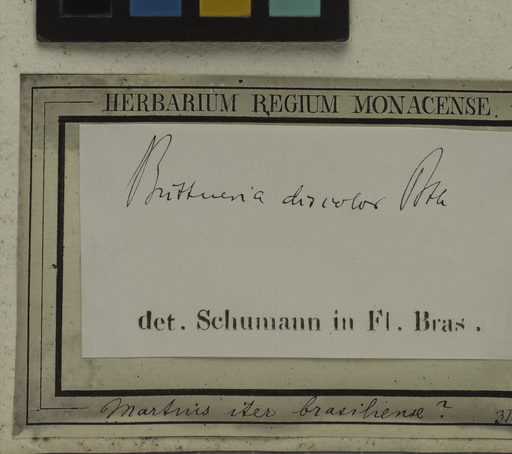 HERBARIUM REGIUM MONACENSE.
Büttneria discolor Bth
det. Schumann in Fl. Bras.
Martius iter brasiliense?